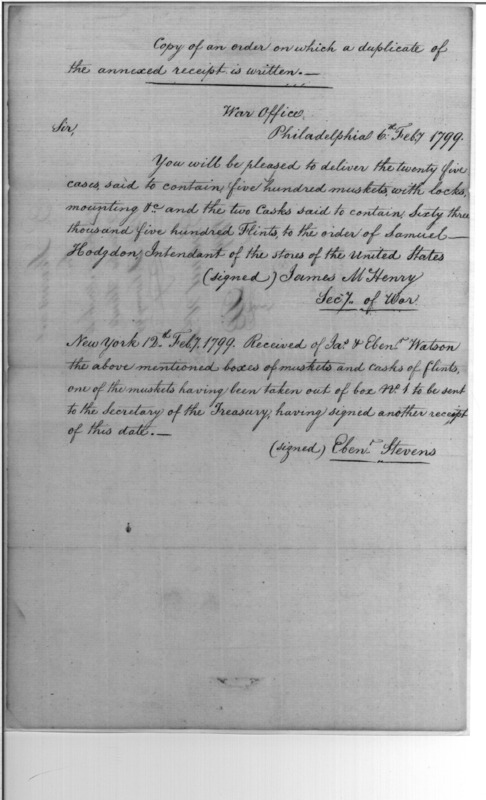 Copy of an order on which a duplicate of
the annexed receipt is written.—
War Office,
Sir, Philadelphia 6th Feby 1799.
You will be pleased to deliver the twenty five
cases, said to contain, five hundred muskets, with locks,
mounting &c and the two Casks said to contain, Sixty three
thousand five hundred Flints, to the order of Samuel—
Hodgdon, Intendant of the stores of the United States
(signed) James McHenry
Secy. of War
New York 12th Feby 1799. Received of Jas. & Ebenr. Watson
the above mentioned boxes of muskets and casks of flints,
one of the muskets having been taken out of box No. 1 to be sent
to the Secretary of the Treasury, having signed another receipt
of this date.—
(signed) Ebenr. Stevens